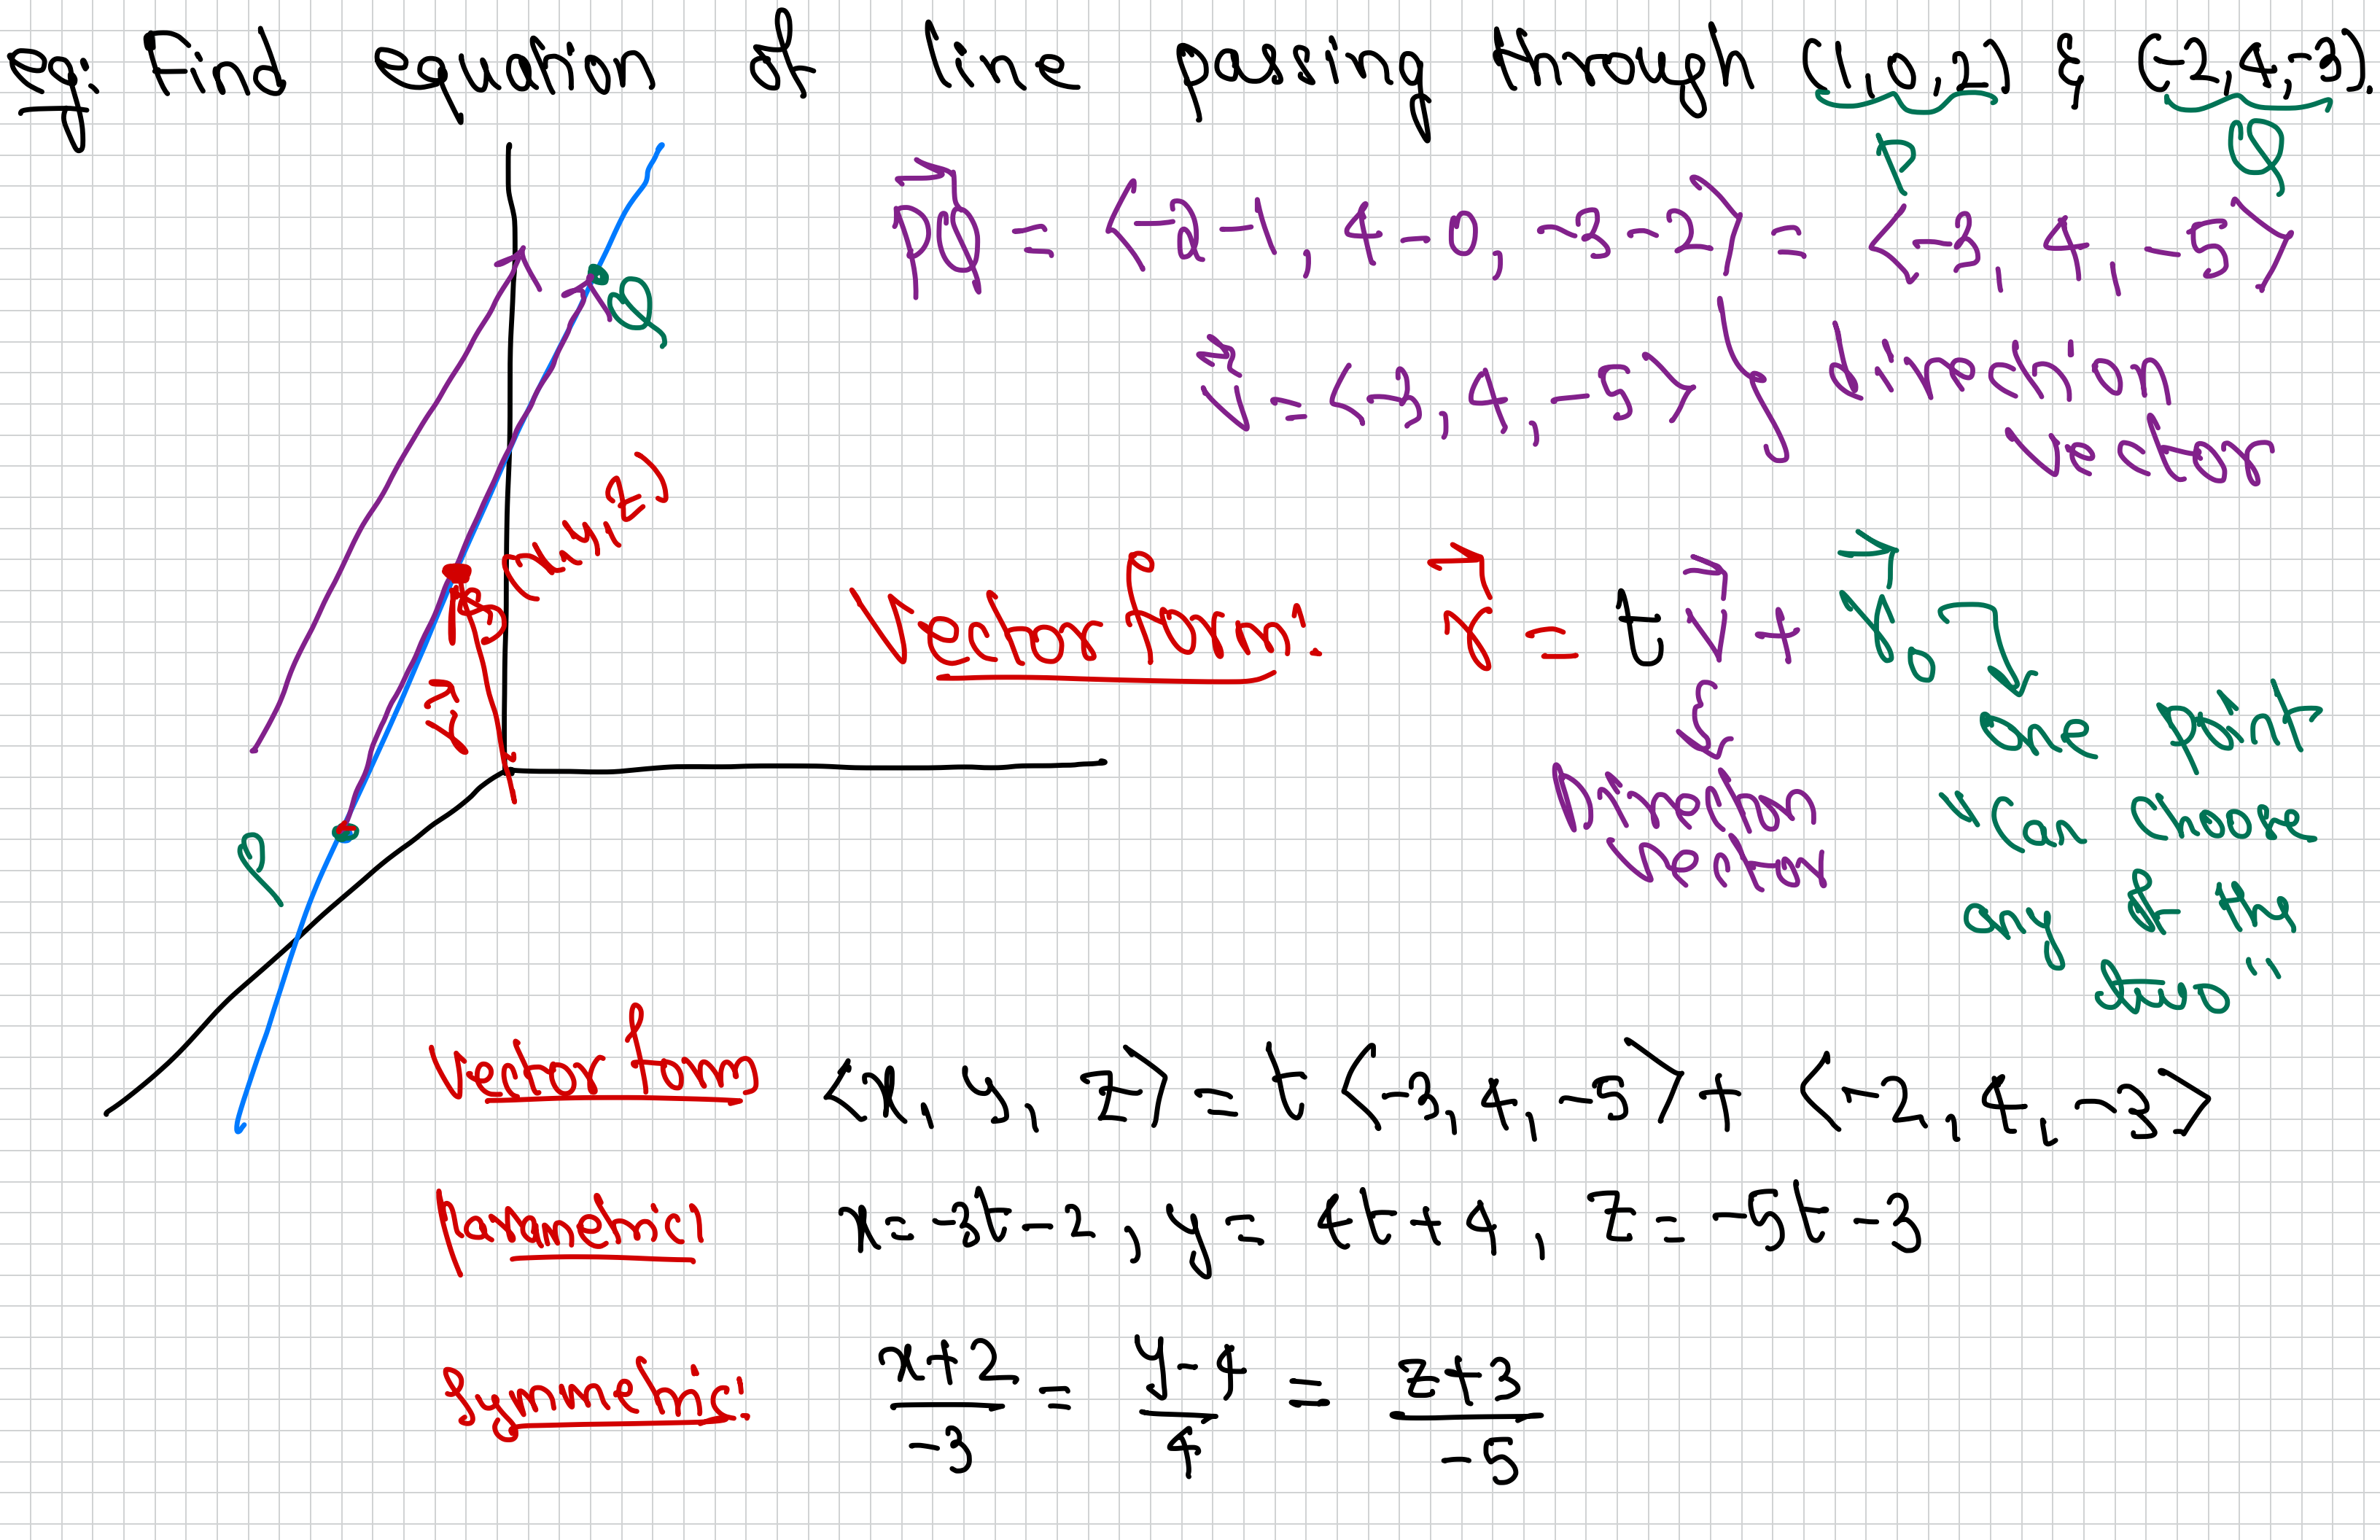 eg: Find equation of line passing through (1,0,2) & (-2,4,-3).
P Q
PQ = <-2-1, 4-0, -3-2> = <-3, 4, -5>
Q
v = <-3, 4, -5> direction
vector
P(x,y,z)
Vector form: r = t v + r0
r
one point
"can choose
any of the
two"
Direction
vector
P
Vector form <x, y, z> = t <-3, 4, -5> + <-2, 4, -3>
Parametric x = -3t - 2, y = 4t + 4, z = -5t - 3
Symmetric: x+2/-3 = y-4/4 = z+3/-5